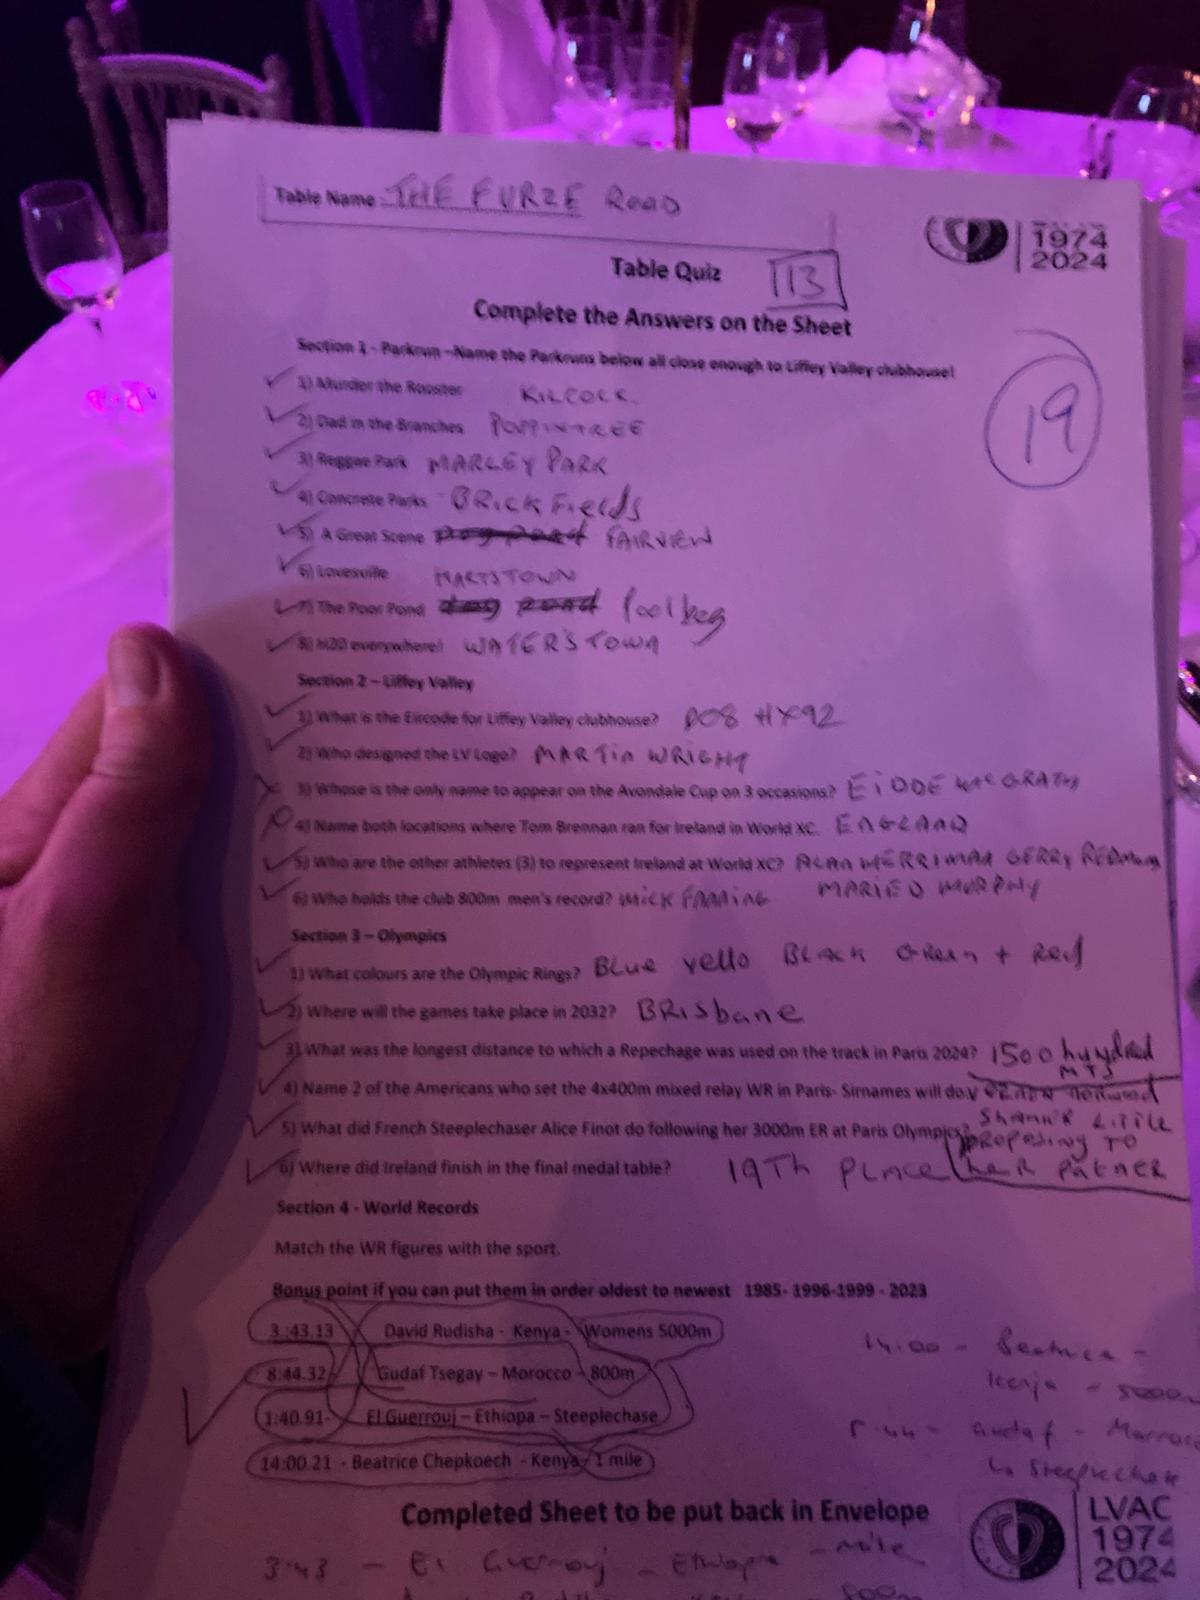 Table Name: THE FURZE ROAD
1974
2024
Table Quiz 113
Complete the Answers on the Sheet
Section 1 - Parkrun –Name the Parkruns below all close enough to Liffey Valley clubhouse!
19
1) Murder the Rooster KILCOCK.
2) Dad in the Branches POPPINTREE
3) Reggae Park MARLEY PARK
4) Concrete Parks BRICK Fields
5) A Great Scene FAIRVIEW
6) Lovesville HARTSTOWN
7) The Poor Pond Poolbeg
8) H20 everywhere! WATER'S TOWN
Section 2 – Liffey Valley
1) What is the Eircode for Liffey Valley clubhouse? D08 HX92
2) Who designed the LV Logo? MARTIN WRIGHT
3) Whose is the only name to appear on the Avondale Cup on 3 occasions? EiODE McGRATH
4) Name both locations where Tom Brennan ran for Ireland in World XC. ENGLAND
5) Who are the other athletes (3) to represent Ireland at World XC? ALAN MERRIMAN GERRY REDMAN
6) Who holds the club 800m men's record? MICK FANNING MARIE O MURPHY
Section 3 – Olympics
1) What colours are the Olympic Rings? Blue yello BLACK GReen + Red
2) Where will the games take place in 2032? BRISbane
3) What was the longest distance to which a Repechage was used on the track in Paris 2024? 1500 hundred
MTS
4) Name 2 of the Americans who set the 4x400m mixed relay WR in Paris- Sirnames will do.
LITTLE
5) What did French Steeplechaser Alice Finot do following her 3000m ER at Paris Olympics? PROPOSING TO
6) Where did Ireland finish in the final medal table? 19Th PLACE heR PaTNER
Section 4 - World Records
Match the WR figures with the sport.
Bonus point if you can put them in order oldest to newest 1985- 1996-1999 - 2023
3.:43.13 David Rudisha - Kenya - Womens 5000m
8:44.32 Gudaf Tsegay – Morocco - 800m
1:40.91- El Guerrouj – Ethiopa – Steeplechase
14:00.21 - Beatrice Chepkoech - Kenya- 1 mile
14.00 - Beatrice -
Kenya - 5000m
8.44 - Gudaf - Morroc
Steeplechase
Completed Sheet to be put back in Envelope
LVAC
1974
2024
3.43 - El Guerrouj - Ethiopia - mile
800m